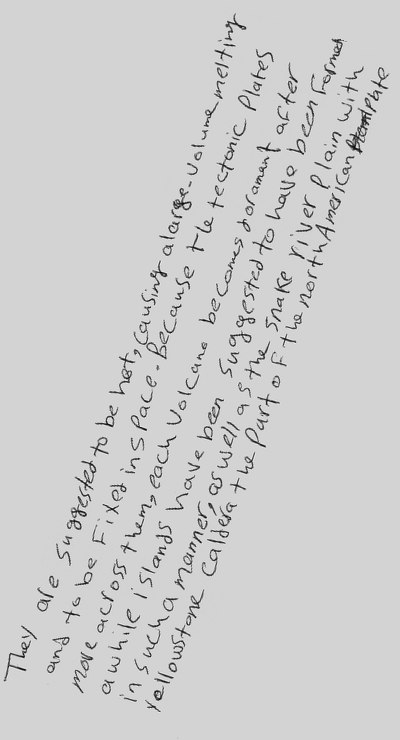 They are suggested to be hot, causing a large-volume melting
and to be Fixed in space. Because the tectonic Plates
more across them, each volcano becomes doramant after
awhile islands have been suggested to have been Formed
in such a manner, as well as the snake river Plain with
Yellowstone caldera the Part of the north American Plate